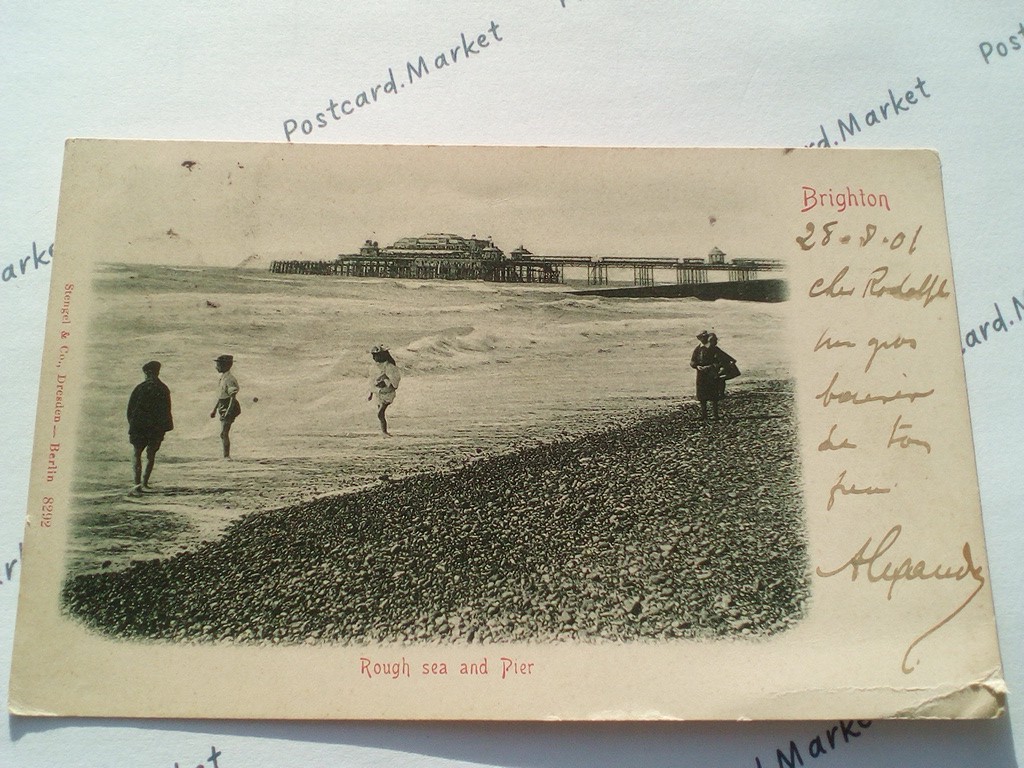 Postcard.Market
Post
rd.Market
arke
ard.M
Brighton
28-8-01
cher Rodolphe
un gros
baiser
de ton
Alexandre
Stengel & Co., Dresden — Berlin 8292
Rough sea and Pier
Market